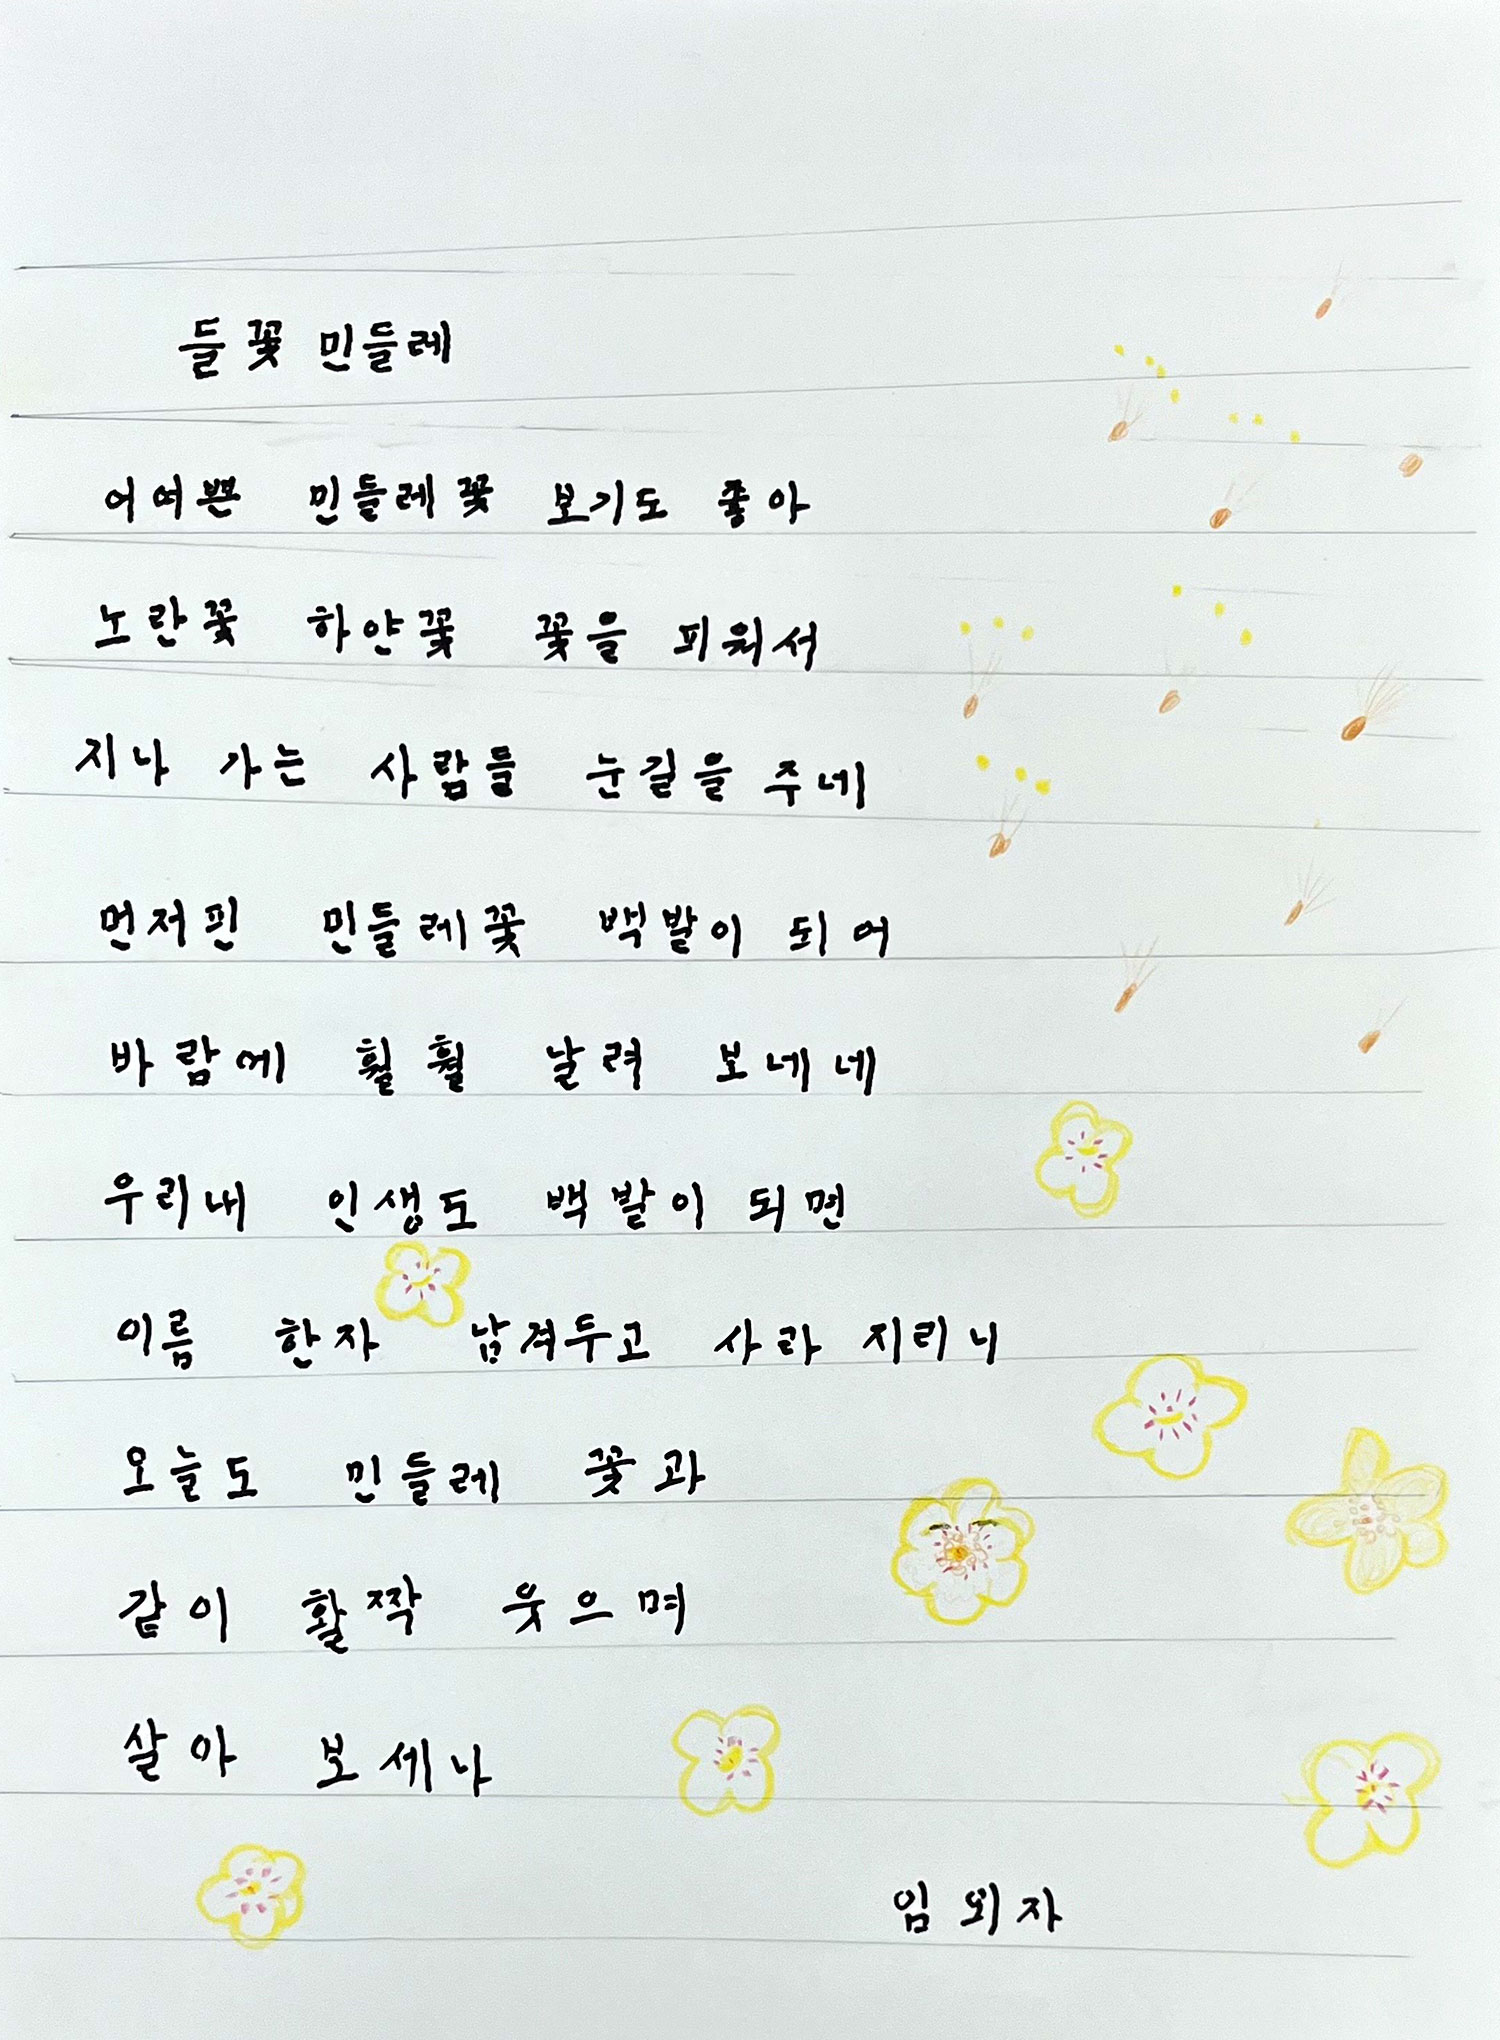 들꽃 민들레
어여쁜 민들레꽃 보기도 좋아
노란꽃 하얀꽃 꽃을 피워서
지나 가는 사람들 눈길을 주네
먼저핀 민들레꽃 백발이 되어
바람에 훨훨 날려 보네네
우리내 인생도 백발이 되면
이름 한자 남겨두고 사라 지리니
오늘도 민들레 꽃과
같이 활짝 웃으며
살아 보세나
임외자